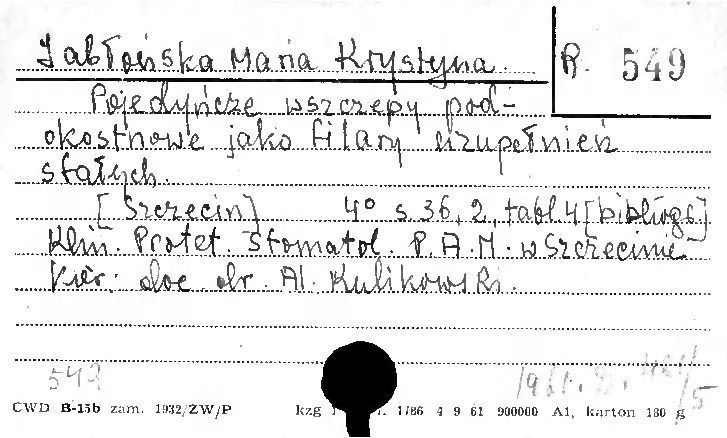 Jabłońska Maria Krystyna. R. 549
Pojedyńcze wszczepy pod-
okostnowe jako filary uzupełnień
stałych.
[Szczecin] 4° s. 36, 2, tabl. 4 [bibliogr.]
Klin. Protet. Stomatol. P.A.M. w Szczecinie
Kier: doc dr. Al. Kulikowski.
549 1961. D.
/5
CWD B-15b zam. 1932/ZW/P kzg 1786 4 9 61 900000 A1, karton 180 g